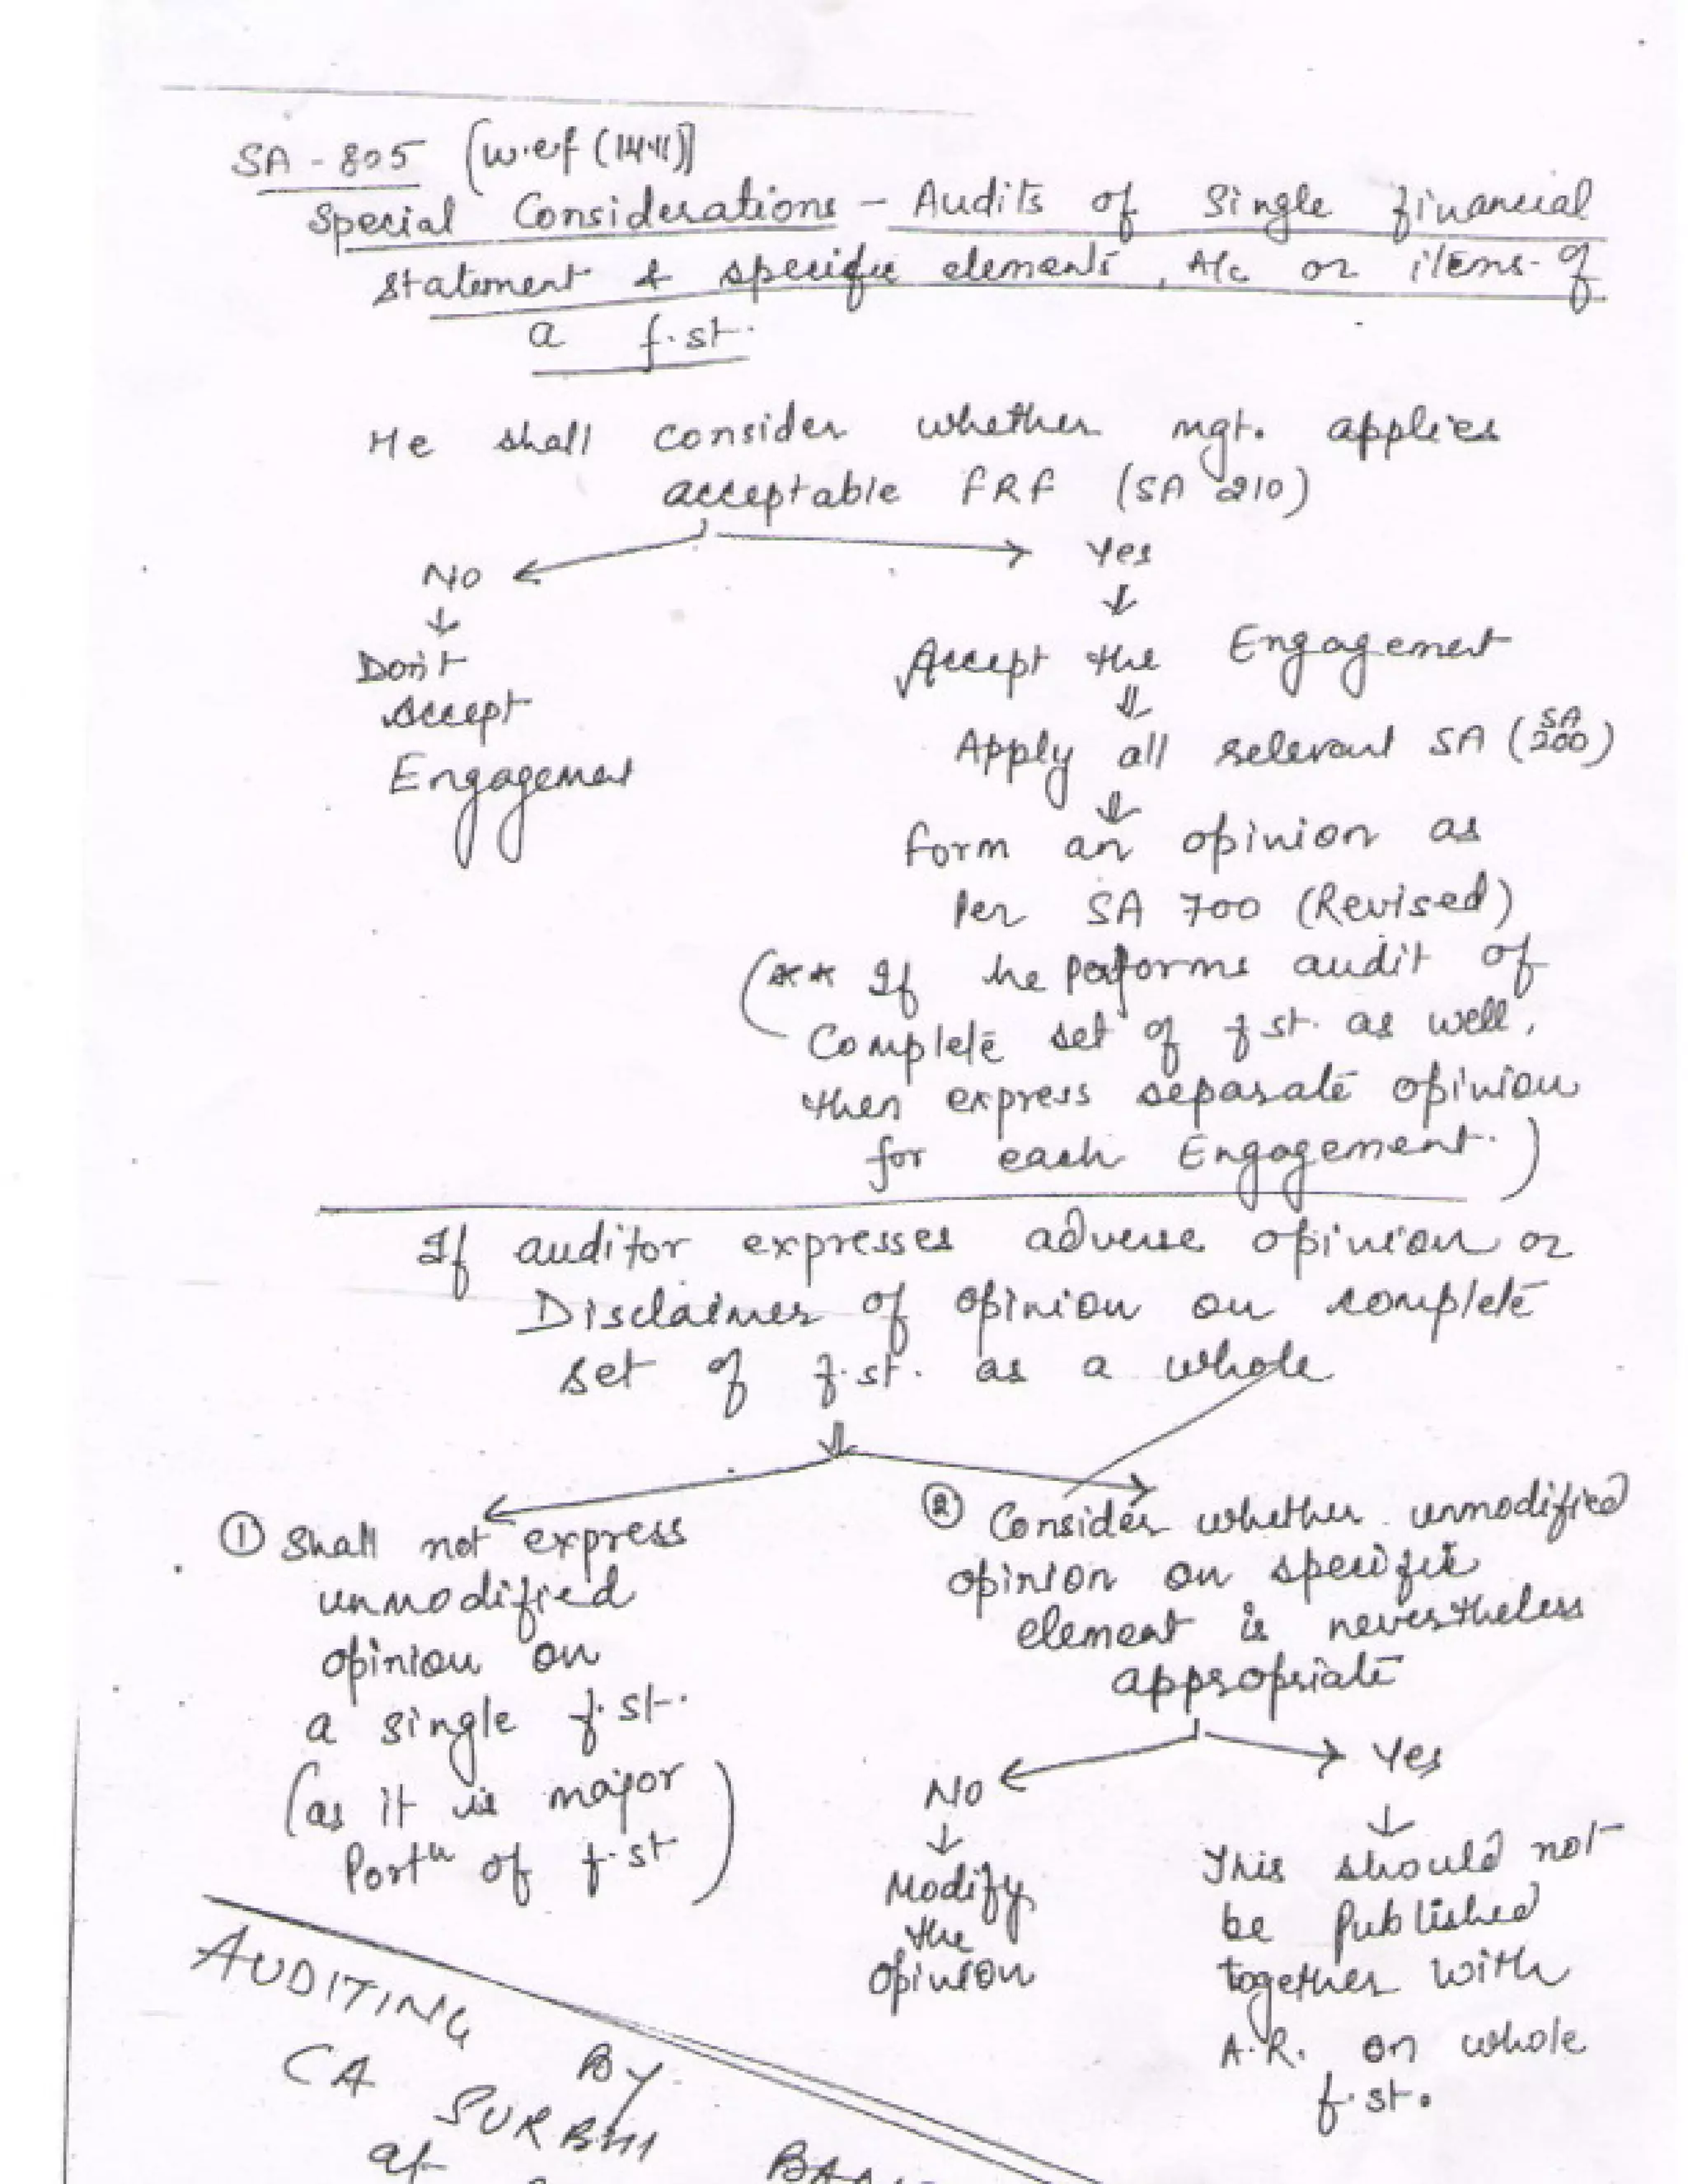 SA - 805 [w.e.f (1.4.11)]
Special Considerations - Audits of Single financial
statement & specific elements, A/c or items of
a f.st.
He shall consider whether mgt. applies
acceptable FRF (SA 210)
No
Yes
Don't
Accept
Engagement
Accept the Engagement
Apply all relevant SA (SA 200)
Form an opinion as
Per SA 700 (Revised)
(** If he performs audit of
Complete set of f st. as well,
then express separate opinion
for each Engagement.)
If auditor expresses adverse opinion or
Disclaimer of opinion on complete
set of f.st. as a whole
① Shall not express
unmodified
opinion on
a single f.st.
(as it is major
Portn of f.st)
② Consider whether unmodified
opinion on specific
element is nevertheless
appropriate
No
Yes
Modify
the
opinion
This should not
be Published
together with
A.R. on whole
f.st.
AUDITING
By
CA SURBHI
at